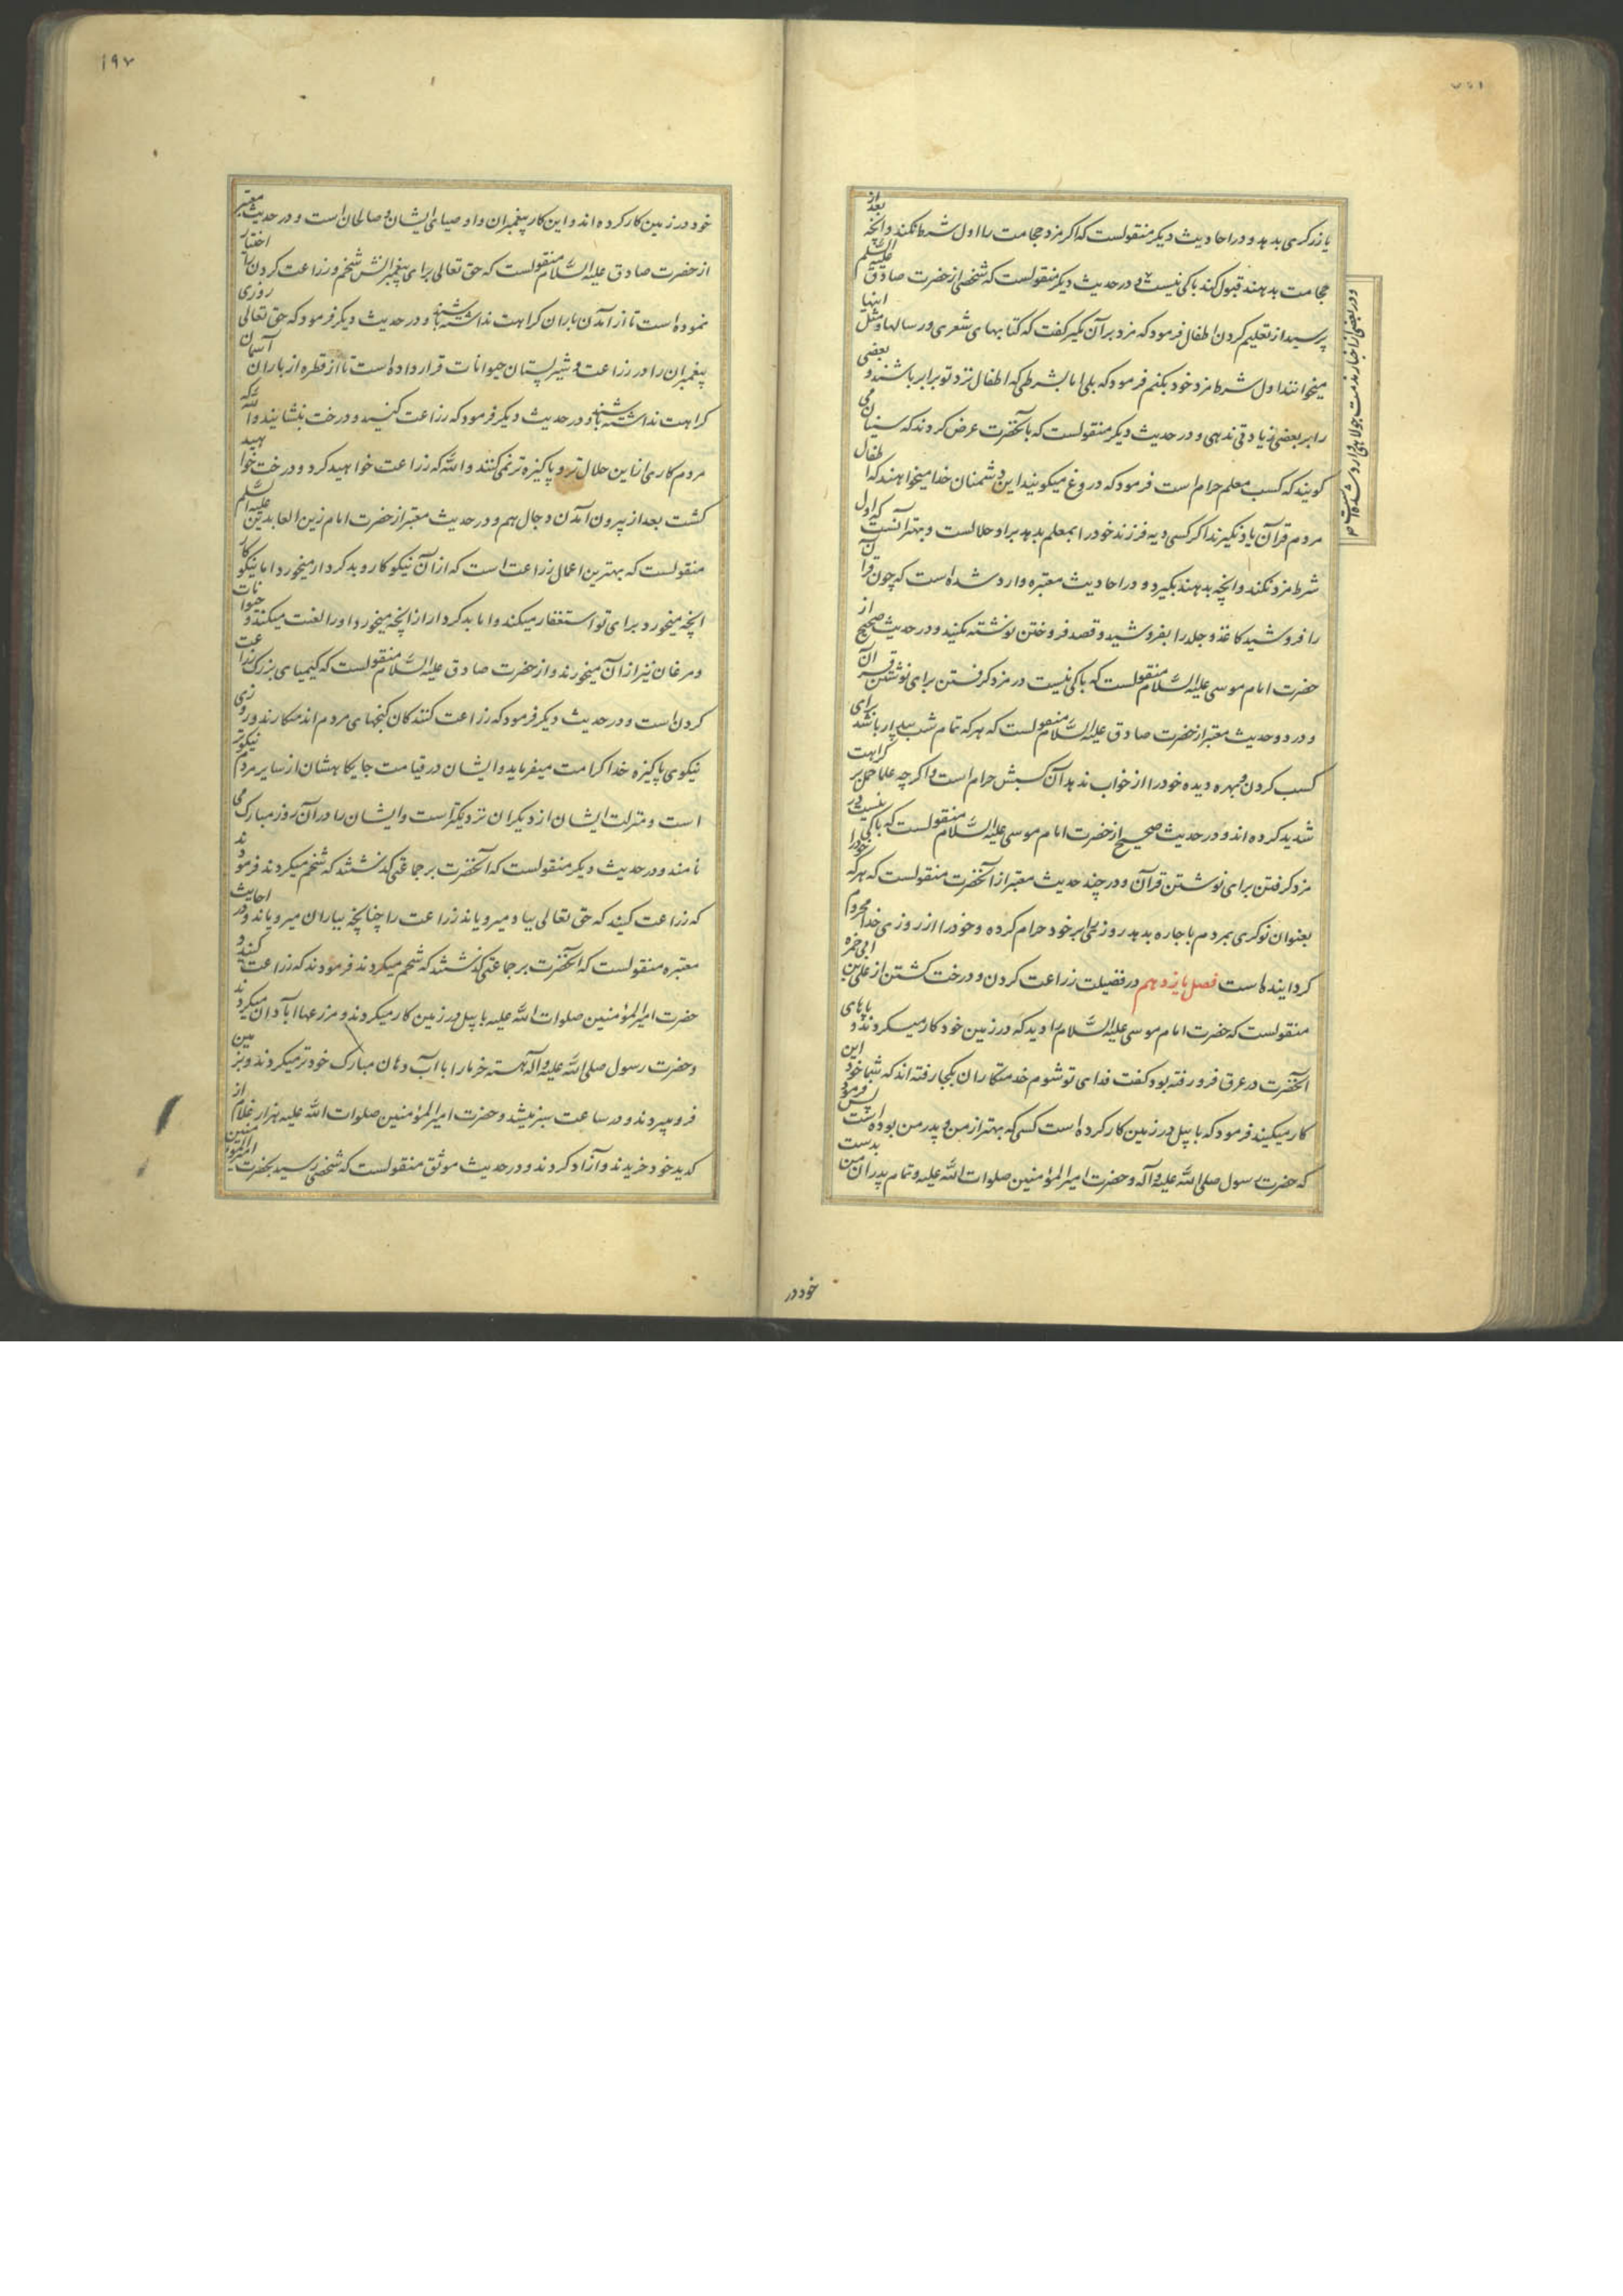 یا زرکری بدهد و در احادیث دیکر منقولست که اکر مزد حجامت را اول شرط نکند و آنچه بعد از
حجامت بدهند قبول کند باکی نیست و در حدیث دیکر منقولست که شخصی از حضرت صادق علیه السلم
پرسید از تعلیم کردن اطفال فرمود که مزد بر آن مکیر کفت که کتابهای شعری و رسالها و مثل اینها
میخوانند اول شرط مزد خود بکنم فرمود که بلی اما بشرطی که اطفال نزد تو برابر باشند و بعضی
را بر بعضی زیادتی ندهی و در حدیث دیکر منقولست که بآنحضرت عرض کردند که سنیان می
کویند که کسب معلم حرام است فرمود که دروغ میکویند این دشمنان خدا میخواهند که اطفال
مردم قرآن یاد نکیرند اکر کسی دیه فرزند خود را بمعلم بدهد بر او حلالست و بهتر آنست که اول
شرط مزد نکند و آنچه بدهند بکیرد و در احادیث معتبره وارد شده است که چون قرآن
را فروشید کاغذ و جلد را بفروشید و قصد فروختن نوشته مکنید و در حدیث صحیح از
حضرت امام موسی علیه السلام منقولست که باکی نیست در مزد کرفتن برای نوشتن قرآن
و در دو حدیث معتبر از حضرت صادق علیه السلام منقولست که هر که تمام شب بیدار باشد برای
کسب کردن و بهره دیده خود را از خواب ندهد آن کسبش حرام است و اکر چه علما حمل بر کراهت
شدید کرده اند و در حدیث صحیح از حضرت امام موسی علیه السلام منقولست که باکی نیست در
مزد کرفتن برای نوشتن قرآن و در چند حدیث معتبر از آنحضرت منقولست که هر که خود را
بعنوان نوکری بمردم باجاره بدهد روزی را بر خود حرام کرده و خود را از روزی خدا محروم
کردانیده است فصل یازدهم در فضیلت زراعت کردن و درخت کشتن از علی بن ابی حمزه
منقولست که حضرت امام موسی علیه السلام را دید که در زمین خود کار میکردند و پاهای
آنحضرت در عرق فرو رفته بود کفت فدای تو شوم خدمتکاران بکجا رفته اند که شما خود این
کار میکنید فرمود که با بیل در زمین کار کرده است کسی که بهتر از من و پدر من بوده است پس فرمود
که حضرت رسول صلی الله علیه و آله و حضرت امیرالمؤمنین صلوات الله علیه و تمام پدران من بدست
و در بعضی از اخبار مذمت جولاهی وارد شده است
خود در
۱۹۷
خود در زمین کار کرده اند و این کار پیغمبران و اوصیای ایشان و صالحان است و در حدیث معتبر
از حضرت صادق علیه السلام منقولست که حق تعالی برای پیغمبرانش شخم و زراعت کردن را اختیار
نموده است تا از آمدن باران کراهت نداشته باشند و در حدیث دیکر فرمود که حق تعالی روزی
پیغمبران را در زراعت و شیر پستان حیوانات قرار داده است تا از قطره از باران آسمان
کراهت نداشته باشند و در حدیث دیکر فرمود که زراعت کنید و درخت بنشانید و الله که
مردم کاری از این حلال تر و پاکیزه تر نمی کنند و الله که زراعت خواهید کرد و درخت خواهید
کشت بعد از بیرون آمدن دجال هم و در حدیث معتبر از حضرت امام زین العابدین علیه السلم
منقولست که بهترین اعمال زراعت است که از آن نیکوکار و بد کردار میخورد اما نیکو کار
آنچه میخورد برای تو استغفار میکند و اما بد کردار از آنچه میخورد او را لعنت میکند و حیوانات
و مرغان نیز از آن میخورند و از حضرت صادق علیه السلام منقولست که کیمیای بزرک زراعت
کردن است و در حدیث دیکر فرمود که زراعت کنندکان کنجهای مردم اند میکارند و روزی
نیکوی پاکیزه خدا کرامت میفرماید و ایشان در قیامت جایکاهشان از سایر مردم نیکوتر
است و منزلت ایشان از دیکران نزدیکتر است و ایشان را در آن روز مبارک می
نامند و در حدیث دیکر منقولست که آنحضرت بر جماعتی کذشتند که شخم میکردند فرمودند
که زراعت کنید که حق تعالی بباد میرویاند زراعت را چنانچه بباران میرویاند و در احادیث
معتبره منقولست که آنحضرت بر جماعتی کذشتند که شخم میکردند فرمودند که زراعت کنند و
حضرت امیرالمؤمنین صلوات الله علیه با بیل در زمین کار میکردند و مزرعها آبادان میکردند
و حضرت رسول صلی الله علیه و آله هسته خرما را با آب دهان مبارک خود تر میکردند و بزمین
فرو میبردند و در ساعت سبز میشد و حضرت امیرالمؤمنین صلوات الله علیه هزار غلام از
کد ید خود خریدند و آزاد کردند و در حدیث موثق منقولست که شخصی رسید بحضرت امیرالمؤمنین